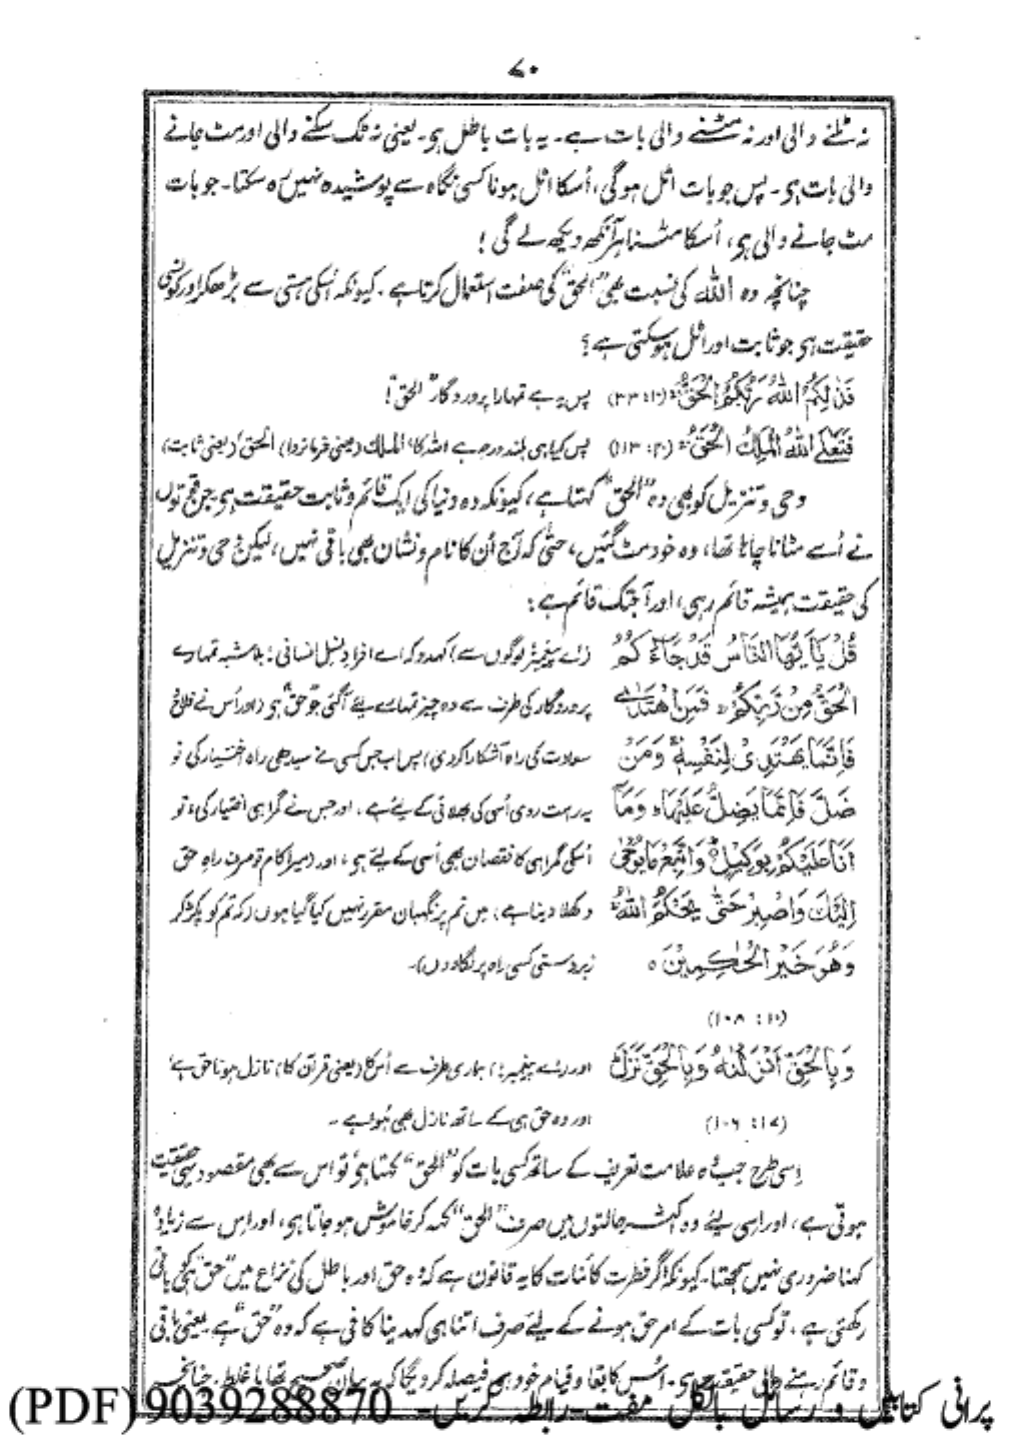 ۷۰
نہ ٹلنے والی اور نہ مٹنے والی بات ہے۔ یہ بات باطل ہی۔ یعنی نہ ٹک سکنے والی اور مٹ جانے
والی بات ہی۔ پس جو بات اٹل ہوگی، اُسکا اٹل ہونا کسی نگاہ سے پوشیدہ نہیں رہ سکتا۔ جو بات
مٹ جانے والی ہی، اُسکا مٹنا ہر آنکھ دیکھ لے گی!
چنانچہ وہ اللہ کی نسبت بھی "الحق" کی صفت استعمال کرتا ہے۔ کیونکہ اُسکی ہستی سے بڑھکر اور کونسی
حقیقت ہی جو ثابت اور اٹل ہو سکتی ہے؟
فَذٰلِكُمُ اللّٰهُ رَبُّكُمُ الْحَقُّ (۱۰: ۳۳) پس یہ ہے تمہارا پروردگار "الحق"!
فَتَعٰلَى اللّٰهُ الْمَلِكُ الْحَقُّ (۲۰: ۱۱۳) پس کیا ہی بلند درجہ ہے اللہ کا، الملک (یعنی فرمانروا) الحق (یعنی ثابت)
وحی و تنزیل کو بھی وہ "الحق" کہتا ہے، کیونکہ وہ دنیا کی ایک قائم و ثابت حقیقت ہی۔ جن قوتوں
نے اُسے مٹانا چاہا تھا، وہ خود مٹ گئیں، حتیٰ کہ آج اُن کا نام و نشان بھی باقی نہیں، لیکن وحی و تنزیل
کی حقیقت ہمیشہ قائم رہی، اور آجتک قائم ہے:
قُلْ يٰٓاَيُّهَا النَّاسُ قَدْ جَآءَكُمُ (اے پیغمبر! لوگوں سے) کہدو کہ اے افرادِ نسل انسانی! بلاشبہ تمہارے
الْحَقُّ مِنْ رَّبِّكُمْ ۚ فَمَنِ اهْتَدٰى پروردگار کی طرف سے وہ چیز تمہارے لئے آگئی جو "حق" ہی (اور اُس نے فلاح
فَاِنَّمَا يَهْتَدِىْ لِنَفْسِهٖ ۚ وَمَنْ سعادت کی راہ آشکارا کردی) پس اب جس کسی نے سیدھی راہ اختیار کی تو
ضَلَّ فَاِنَّمَا يَضِلُّ عَلَيْهَا ۚ وَمَآ یہ راست روی اُسی کی بھلائی کے لئے ہے، اور جس نے گمراہی اختیار کی، تو
اَنَا عَلَيْكُمْ بِوَكِيْلٍ ۚ وَاتَّبِعْ مَا يُوْحٰٓى اُسکی گمراہی کا نقصان بھی اُسی کے لئے ہی، اور (میرا کام تو صرف راہِ حق
اِلَيْكَ وَاصْبِرْ حَتّٰى يَحْكُمَ اللّٰهُ دکھلا دینا ہے) میں تم پر نگہبان مقرر نہیں کیا گیا ہوں (کہ تم کو پکڑ کر
وَهُوَ خَيْرُ الْحٰكِمِيْنَ ہ زبردستی کسی راہ پر لگا دوں)۔
(۱۰: ۱۰۸)
وَبِالْحَقِّ اَنْزَلْنٰهُ وَبِالْحَقِّ نَزَلَ اور (اے پیغمبر!) ہماری طرف سے اُس کا (یعنی قرآن کا) نازل ہونا حق ہے،
(۱۷: ۱۰۶) اور وہ حق ہی کے ساتھ نازل بھی ہوا ہے۔
اِسی طرح جب وہ علامت تعریف کے ساتھ کسی بات کو "الحق" کہتا ہی تو اس سے بھی مقصود یہی حقیقت
ہوتی ہے، اور اسی لئے وہ اکثر حالتوں میں صرف "الحق" کہہ کر خاموش ہو جاتا ہی، اور اس سے زیادہ
کہنا ضروری نہیں سمجھتا۔ کیونکہ اگر فطرت کائنات کا یہ قانون ہے کہ وہ حق اور باطل کی نزاع میں "حق" ہی کو باقی
رکھتی ہے، تو کسی بات کے امر حق ہونے کے لئے صرف اتنا ہی کہدینا کافی ہے کہ وہ "حق" ہے۔ یعنی باقی
و قائم رہنے والی حقیقت ہی۔ اُس کا بقا و قیام خود ہی فیصلہ کر دیگا کہ یہ بیان صحیح تھا یا غلط۔ چنانچہ
پرانی کتابیں و رسائل بالکل مفت۔ رابطہ کریں۔ 9039288870 (PDF)